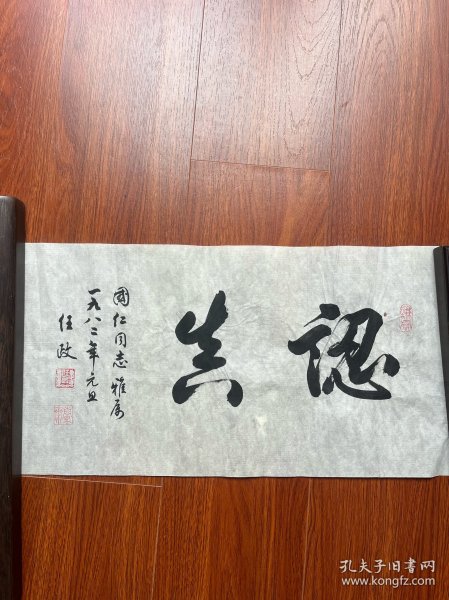 認真
國仁同志雅属
一九八二年元旦
任政
孔夫子旧书网
www.kongfz.com